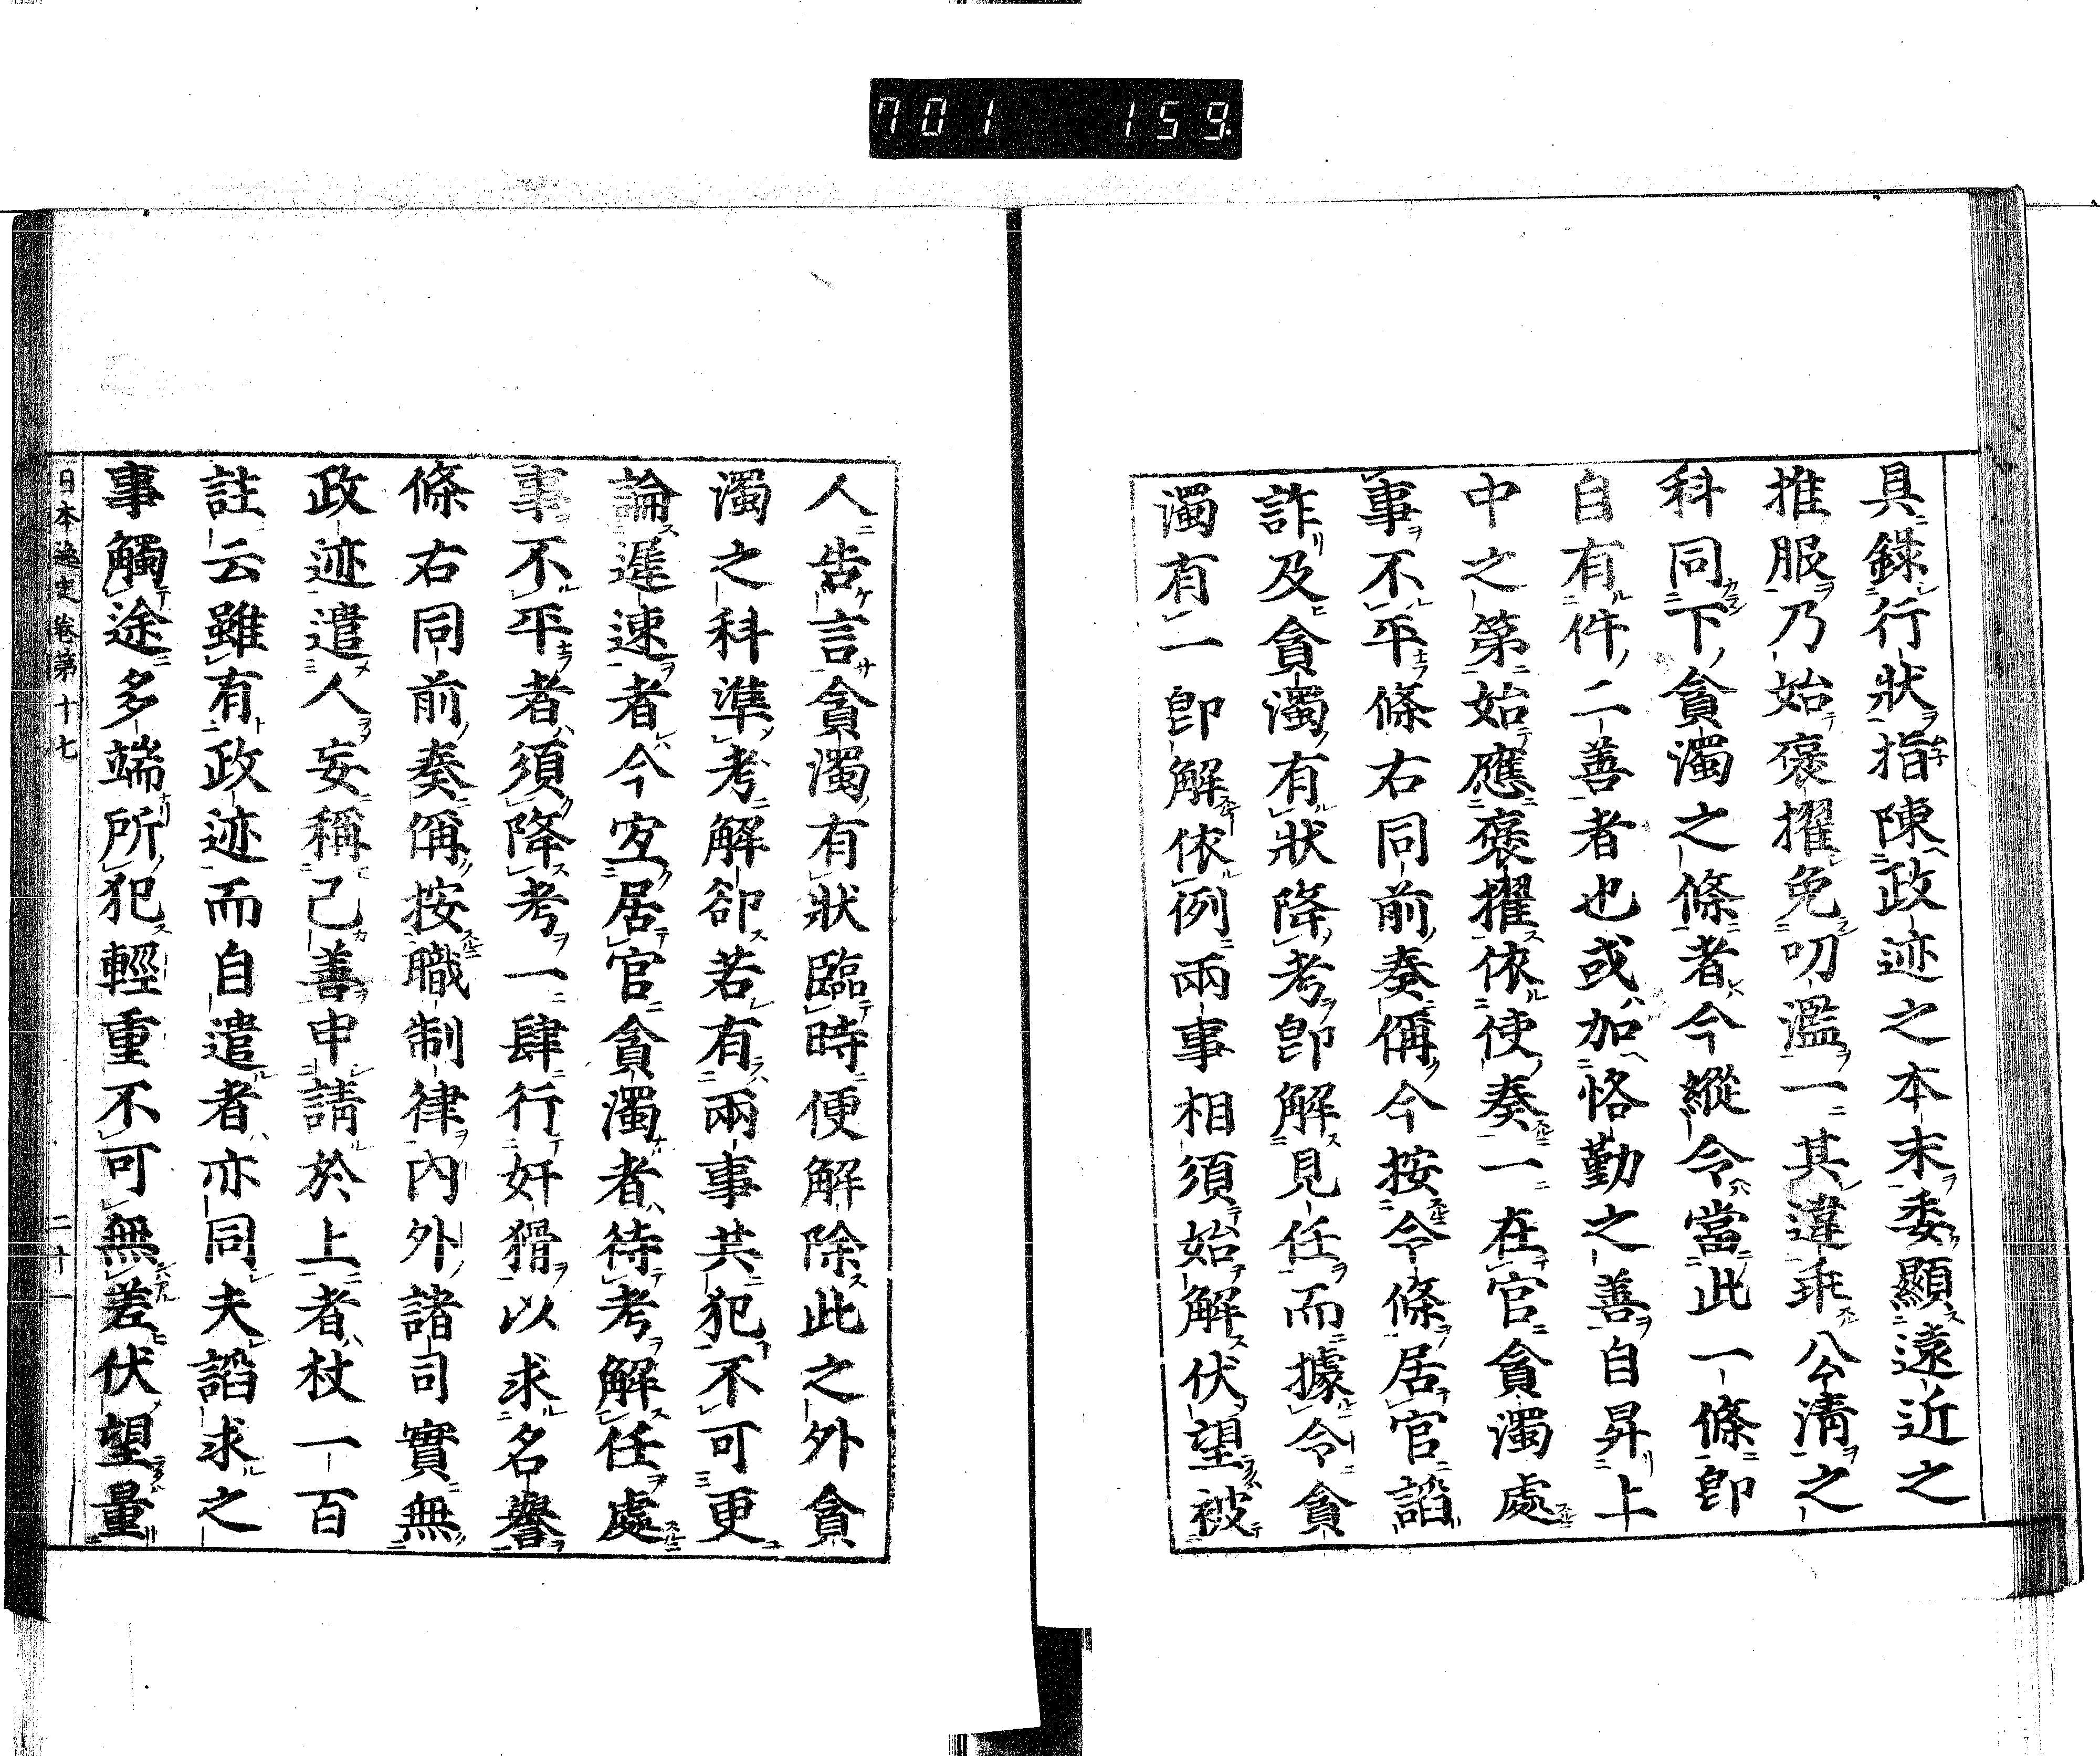 701 159
具錄行狀指陳政迹之本末委顯遠近之
推服乃始褒擢免叨濫一其違乖公淸之
科同下貪濁之條者今縱令當此一條卽
自有件二善者也或加恪勤之善自昇上
中之第始應褒擢依使奏一在官貪濁處
事不平條右同前奏偁今按令條居官諂
詐及貪濁有狀降考卽解見任而據令貪
濁有二卽解依例兩事相須始解伏望被
人告言貪濁有狀臨時便解除此之外貪
濁之科準考解卻若有兩事共犯不可更
論遲速者今宜居官貪濁者待考解任處
事不平者須降考一肆行奸猾以求名譽
條右同前奏偁按職制律內外諸司實無
政迹遣人妄稱己善申請於上者杖一百
註云雖有政迹而自遣者亦同夫諂求之
事觸途多端所犯輕重不可無差伏望量
日本逸史卷第十七 二十一